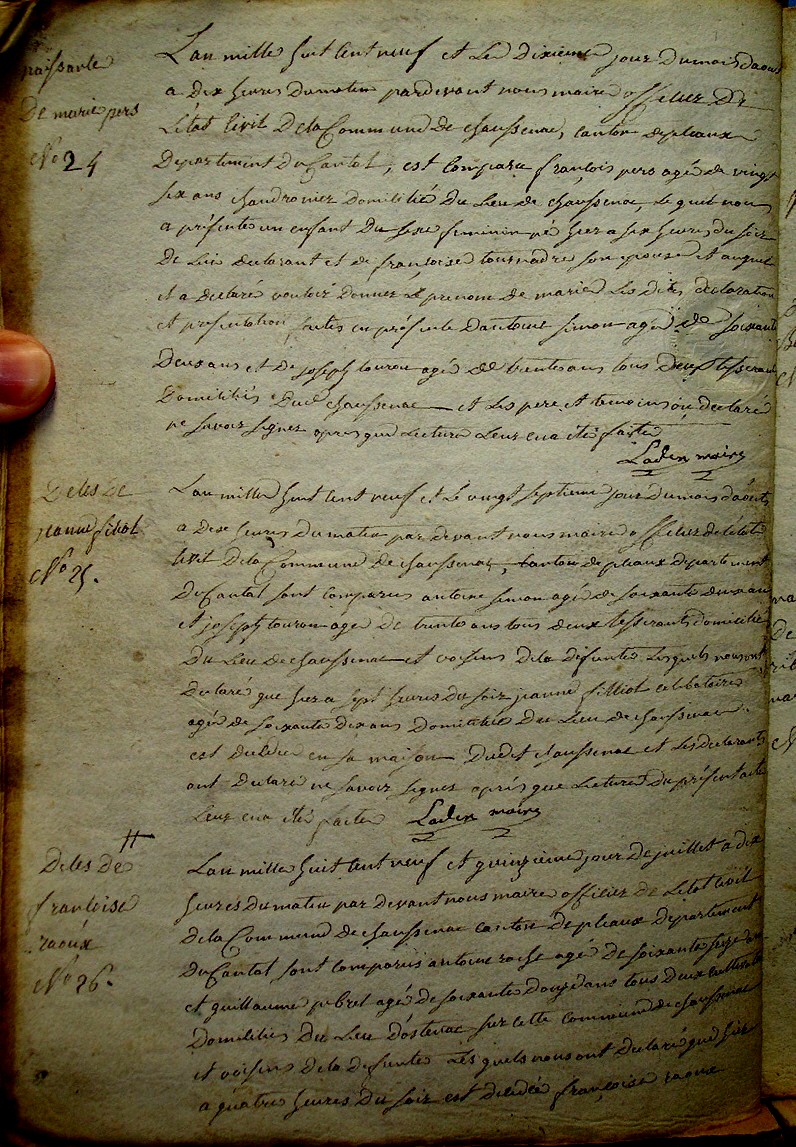 naissance
De marie pers
No 24
L'an mille huit cent neuf et le dixieme jour du mois daout
a dix heures du matin pardevant nous maire officier de
L'état Civil De la Commune De chaussenac, canton depleaux
Departement du Cantal, est comparu françois pers agé de vingt
six ans chaudronier Domicilié du Lieu de chaussenac, Le quel nous
a présenté un enfant du sexe feminin né hier a six heures du soir
De Lui declarant et de françoise tournadre son epouse et auquel
il a declaré vouloir donner le prenom de marie Les dites declaration
et presentation faites en présence Dantoine simon agé de soixante
Deux ans et De joseph touron agé de trente ans tous deux tisserants
Domiciliés Dud chaussenac et Les pere et temoins ont declaré
ne savoir signer apres que Lecture Leur en a été faite
Laden maire
Deces de
jeanne filiol
No 25.
L'an mille huit cent neuf et Le vingt septieme jour du mois daout
a dix heures du matin par devant nous maire officier de létat
Civil De la Commune De chaussenac, Canton de pleaux Departement
Du Cantal sont comparus antoine simon agé de soixante deux ans
et joseph touron agé De trente ans tous deux tisserants domiciliés
Du Lieu de chaussenac et voisins De la défunte Lesquels nous ont
declaré que hier a sept heures du soir jeanne filliol celibataire
agée de soixante dix ans Domiciliée Du Lieu de chaussenac
est decedée en sa maison Dudit chaussenac et Les declarants
ont Declaré ne savoir signer après que Lecture du présent acte
Leur en a été faite Laden maire
Deces de
françoise
raoux
No 26.
L'an mille huit cent neuf et quinzieme jour de juillet a dix
heures du matin par devant nous maire officier de Létat Civil
De la Commune De chaussenac canton De pleaux Departement
Du Cantal sont comparus antoine agé de soixante seize ans
et guillaume agé De soixante Douze ans tous Deux
Domiciliés Du Lieu Dostenac sur cette commune de chaussenac
et voisins De la défunte Les quels nous ont Declaré que hier
a quatre heures Du soir est decedée françoise raoux